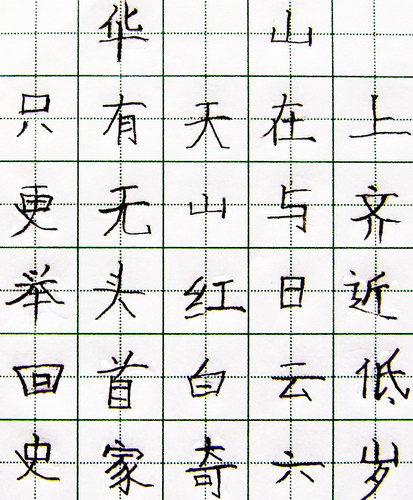 华山
只有天在上
更无山与齐
举头红日近
回首白云低
史家奇六岁